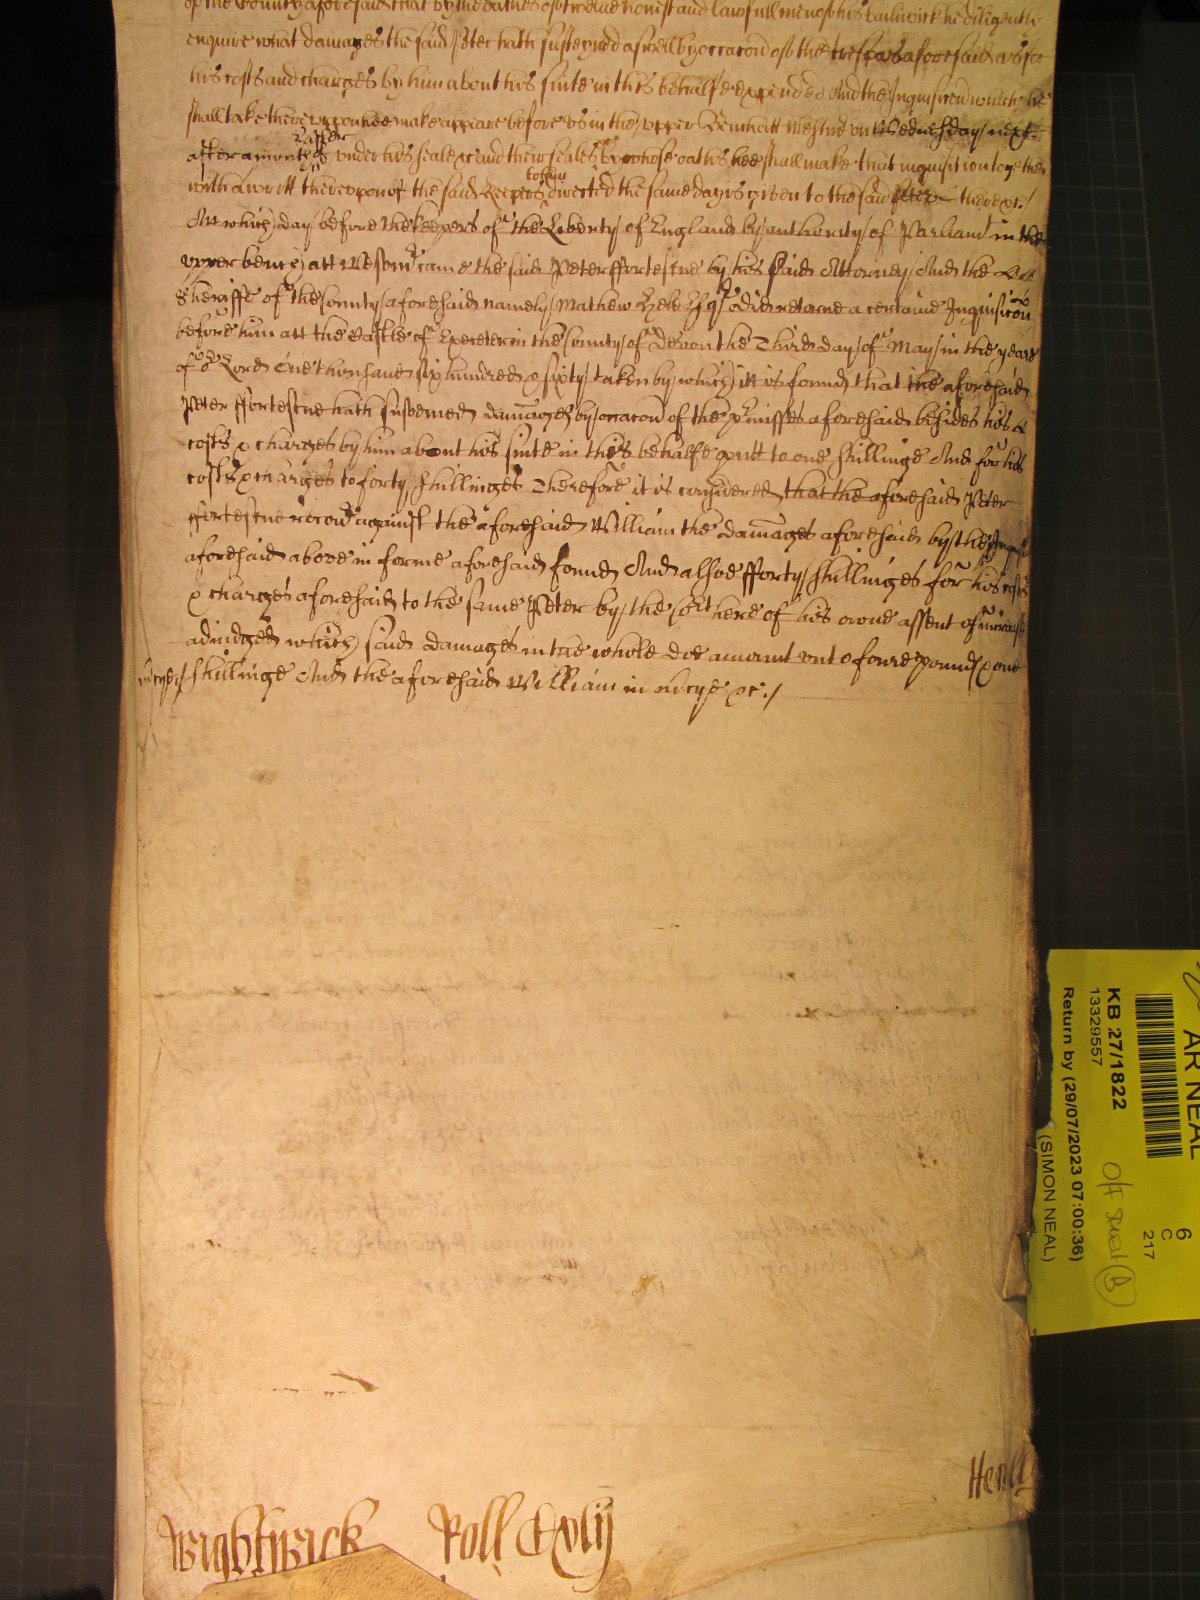 of the County aforesaid that by the oathes of twelve honest and lawfull men of his bailiwick he diligently
enquire what damages the said Peter hath susteyned aswell by occacon of the trespas aforesaid as for
his costs and charges by him about his suite in this behalfe expended And the Inquisicon which he
shall take thereupon hee make appeare before us in the upper Bench att Westmr on Wednesday next
after a month Easter under his seale and the seales by whose oathes hee shall make that inquisition together
with a writt thereupon of the said Keepers to him directed the same day is given to the said Peter there &c /
Att which day before the keepers of the Liberty of England by authority of Parliamt in the
upper bench att Westmr came the said Peter ffortescue by his said Attorney And the
Sheriffe of the County aforesaid namely Mathew Hele Esqr did returne a certaine Inquisicon
before him att the Castle of Exceter in the County of Devon the Third day of May in the yeare
of or Lord One thousand six hundred & sixty taken by which itt is found that the aforesaid
Peter ffortescue hath susteined damages by occacon of the pmisses aforesaid besides his
costs & charges by him about his suite in this behalfe putt to one shillinge And for his
costs & charges to forty shillinges Therefore it is considered that the aforesaid Peter
ffortescue recovr against the aforesaid William the damages aforesaid by the
aforesaid above in forme aforesaid found And alsoe fforty shillinges for his costs
& charges aforesaid to the same Peter by the Cort here of his owne assent of increase
adiudged which said damages in the whole doe amount unto foure pounds & one
mcye shillinge And the aforesaid William in mcye &c /
Wightwick Roll Cxvij
Henll
AR NEAL
6
C
217
KB 27/1822
13329557
Off
B
Return by (29/07/2023 07:00:36)
(SIMON NEAL)